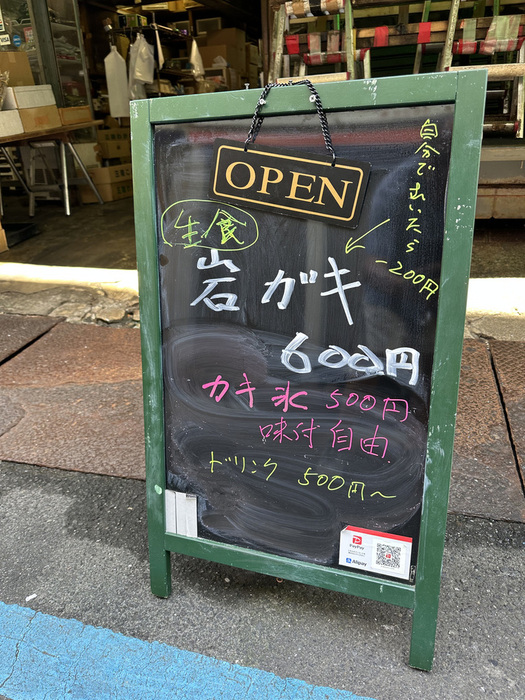 OPEN
自分でむいたら
-200円
生食
岩ガキ
600円
カキ氷 500円
味付自由
ドリンク 500円～
PayPay
Alipay